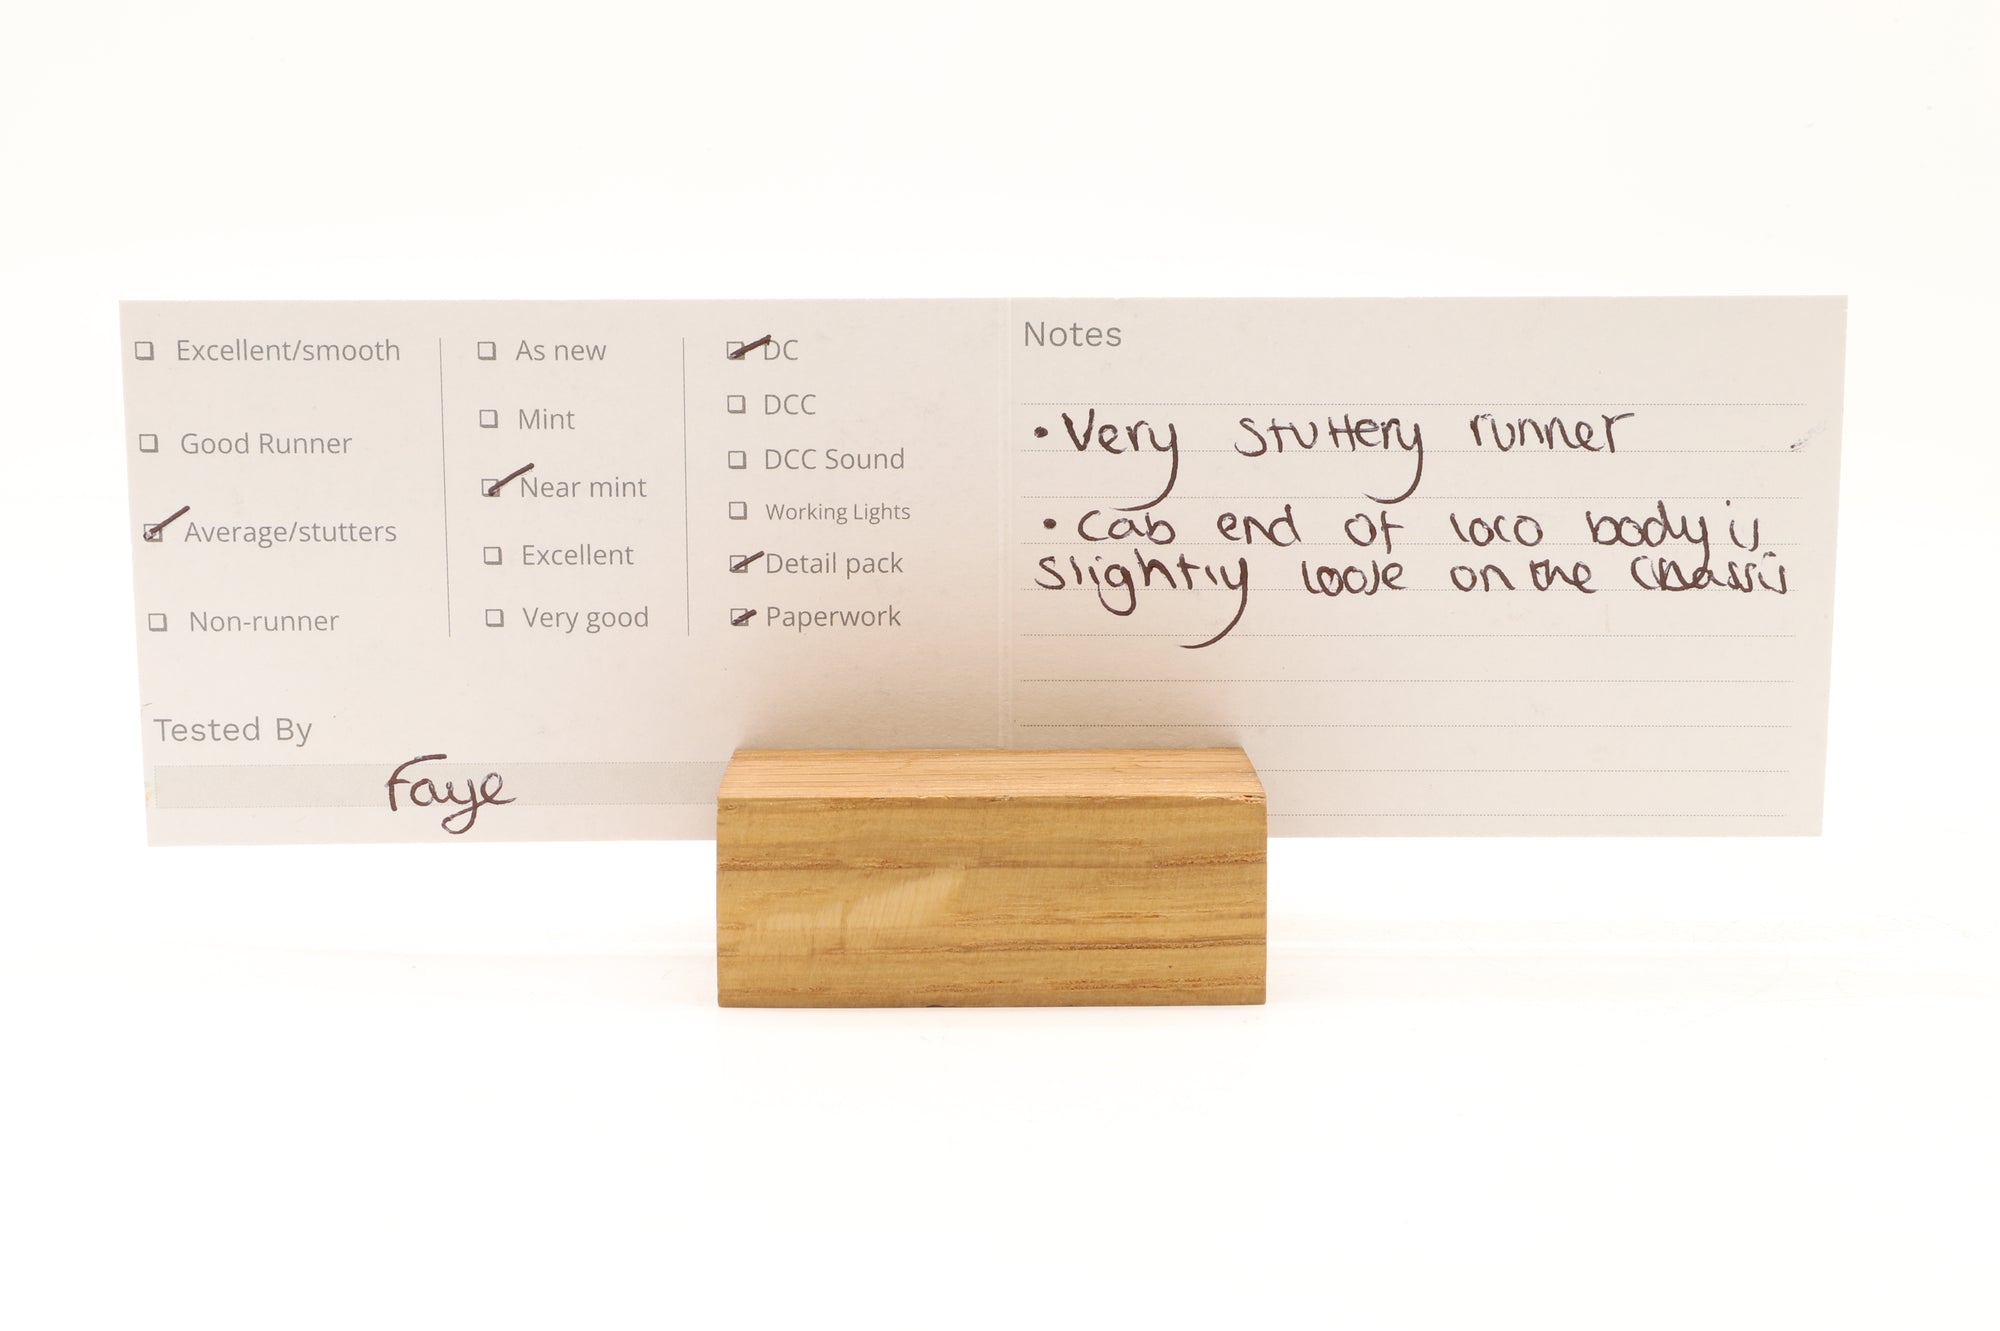 Excellent/smooth
Good Runner
Average/stutters
Non-runner
As new
Mint
Near mint
Excellent
Very good
DC
DCC
DCC Sound
Working Lights
Detail pack
Paperwork
Tested By
Faye
Notes
• Very stuttery runner
• Cab end of loco body is
slightly loose on the chassis